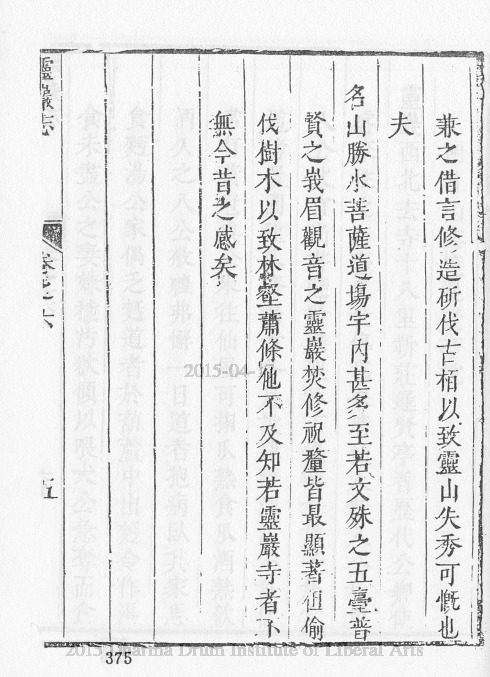 兼之借言修造斫伐古栢以致靈山失秀可慨也
夫
名山勝水菩薩道塲宇内甚多至若文殊之五臺普
賢之峩眉觀音之靈巖焚修祝釐皆最顯著祖偷
伐樹木以致林壑蕭條他不及知若靈巖寺者不
無今昔之感矣
靈巖志
卷之六
五
375
2015-04-
2015 Dharma Drum Institute of Liberal Arts